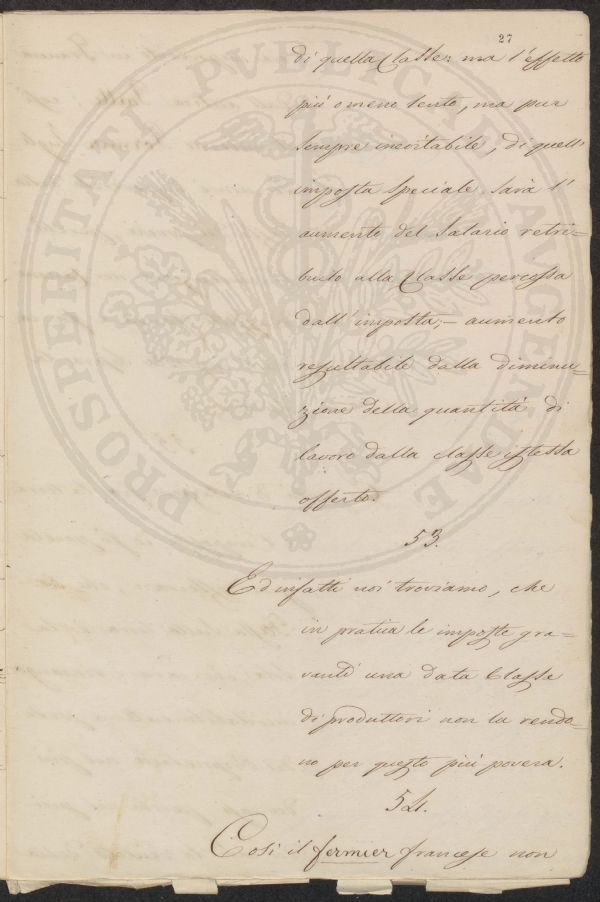 27
di quella Classe; ma l'effetto
più o meno lento, ma pur
sempre inevitabile, di quell'
imposta speciale sarà l'
aumento del salario retri=
buito alla Classe percossa
dall'imposta; – aumento
resultabile dalla diminu=
zione della quantità di
lavoro dalla classe istessa
offerto.
53.
Ed infatti noi troviamo, che
in pratica le imposte gra=
vanti una data Classe
di produttori non la rendo=
no per questo più povera.
54.
Così il fermier francese non
PROSPERITATI PVBLICAE AVGENDAE